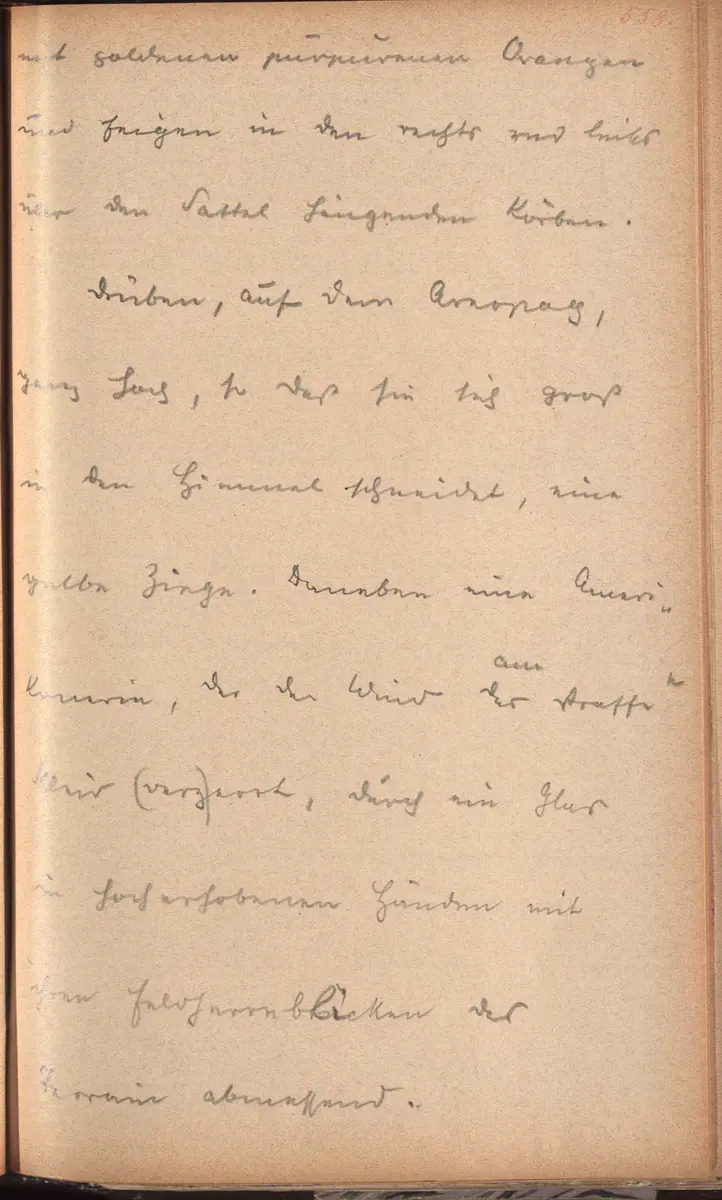 558.
mit goldenen purpurenen Orangen
und Feigen in den rechts und links
über den Sattel hängenden Körben.
Drüben, auf dem Areopag,
ganz hoch, so daß sie sich groß
in den Himmel schneidet, eine
gelbe Ziege. Daneben eine Ameri„
kanerin, der der Wind das straffe
am n
Kleid (ver)zerrt, durch ein Glas
in hocherhobenen Händen mit
ihren Feldherrnblicken das
Terrain abmessend.